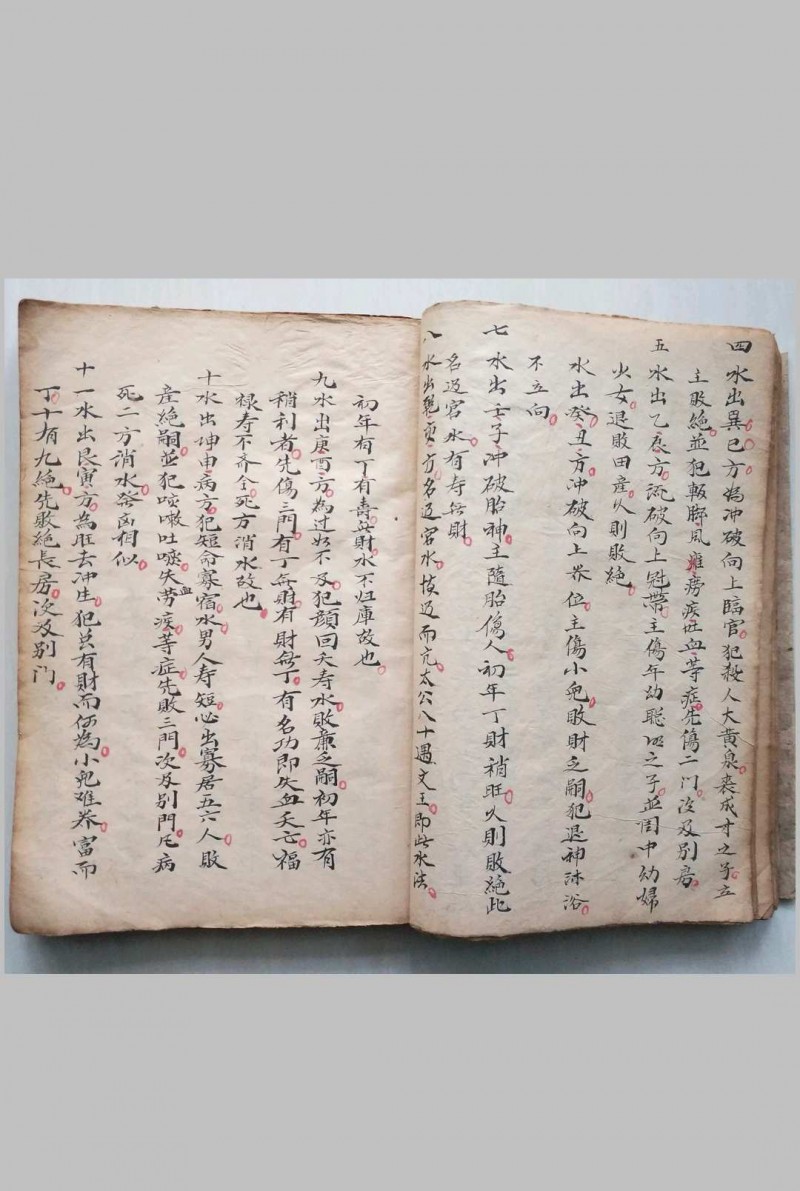 四水出巽巳方為冲破向上臨官犯殺人大黄泉丧成才之子立
主敗絶並犯軟脚風癱癆疾吐血等症先傷二门次及别房
五水出乙辰方流破向上冠帶主傷年幼聪明之子並闺中幼婦
少女退敗田産久則敗絶
水出癸丑方冲破向上养位主傷小兒敗財乏嗣犯退神沐浴
不立向
七水出壬子冲破胎神主隨胎傷人初年丁財稍旺久則敗絶此
名过宫水有寿無財
八水出乾亥方名过宫水情过而亢太公八十遇文王即此水法
初年有丁有壽無財水不归庫故也
九水出庚酉方為过如不及犯顔回夭寿水敗産乏嗣初年亦有
稍利者先傷三門有丁無財有財無丁有名功即失血夭亡福
禄寿不齐全死方消水故也
十水出坤申病方犯短命寡宿水男人寿短必出寡居五六人敗
産絶嗣並犯咳嗽吐痰失血劳疾等症先敗三門次及别門凡病
死二方消水發凶相似
十一水出艮寅方為旺去冲生犯总有財而何為小兒难养富而
丁十有九絶先敗絶長房次及别门